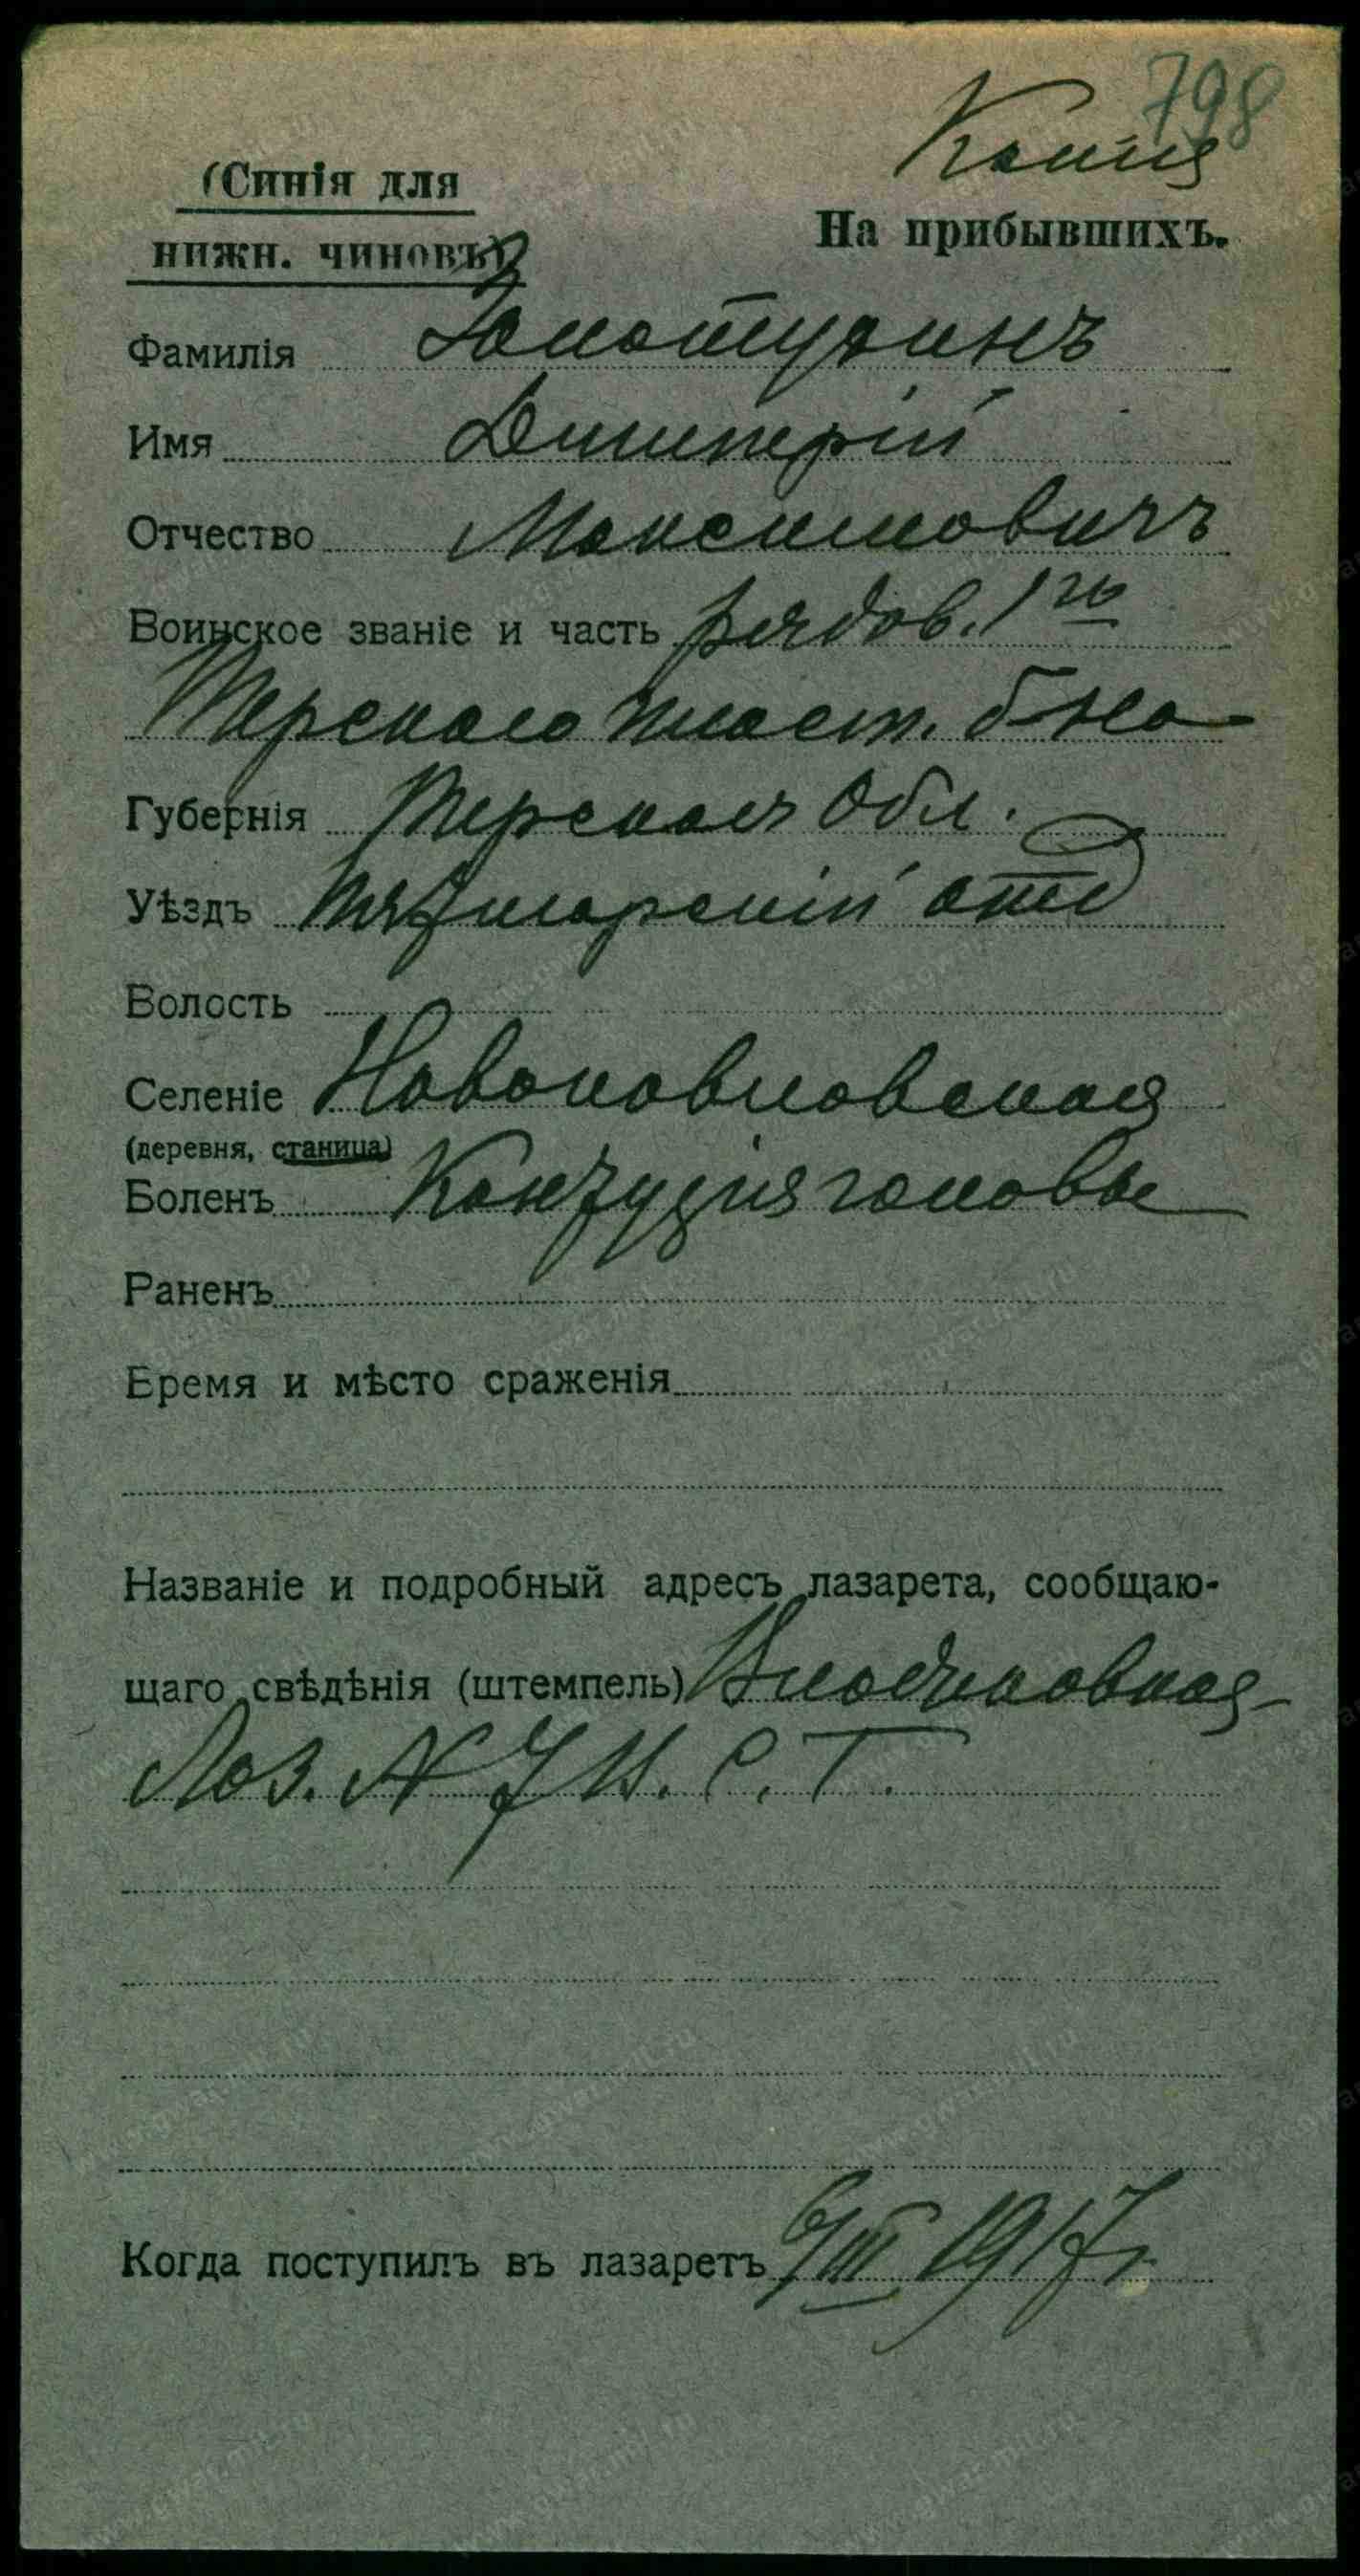 798
Копия
(Синія для
нижн. чиновъ)
На прибывшихъ.
Фамилія Золотухинъ
Имя Дмитерій
Отчество Максимовичъ
Воинское званіе и часть рядов. 1го
Терскаго пласт. б-на
Губернія Терская Обл.
Уѣздъ Пятигорскій отд
Волость
Селеніе Новопавловская
(деревня, станица)
Боленъ Контузія головы
Раненъ
Время и мѣсто сраженія
Названіе и подробный адресъ лазарета, сообщаю-
щаго свѣдѣнія (штемпель)
Лаз. № 7 К. С. Т.
Когда поступилъ въ лазаретъ 6/III 1917г
www.gwar.mil.ru